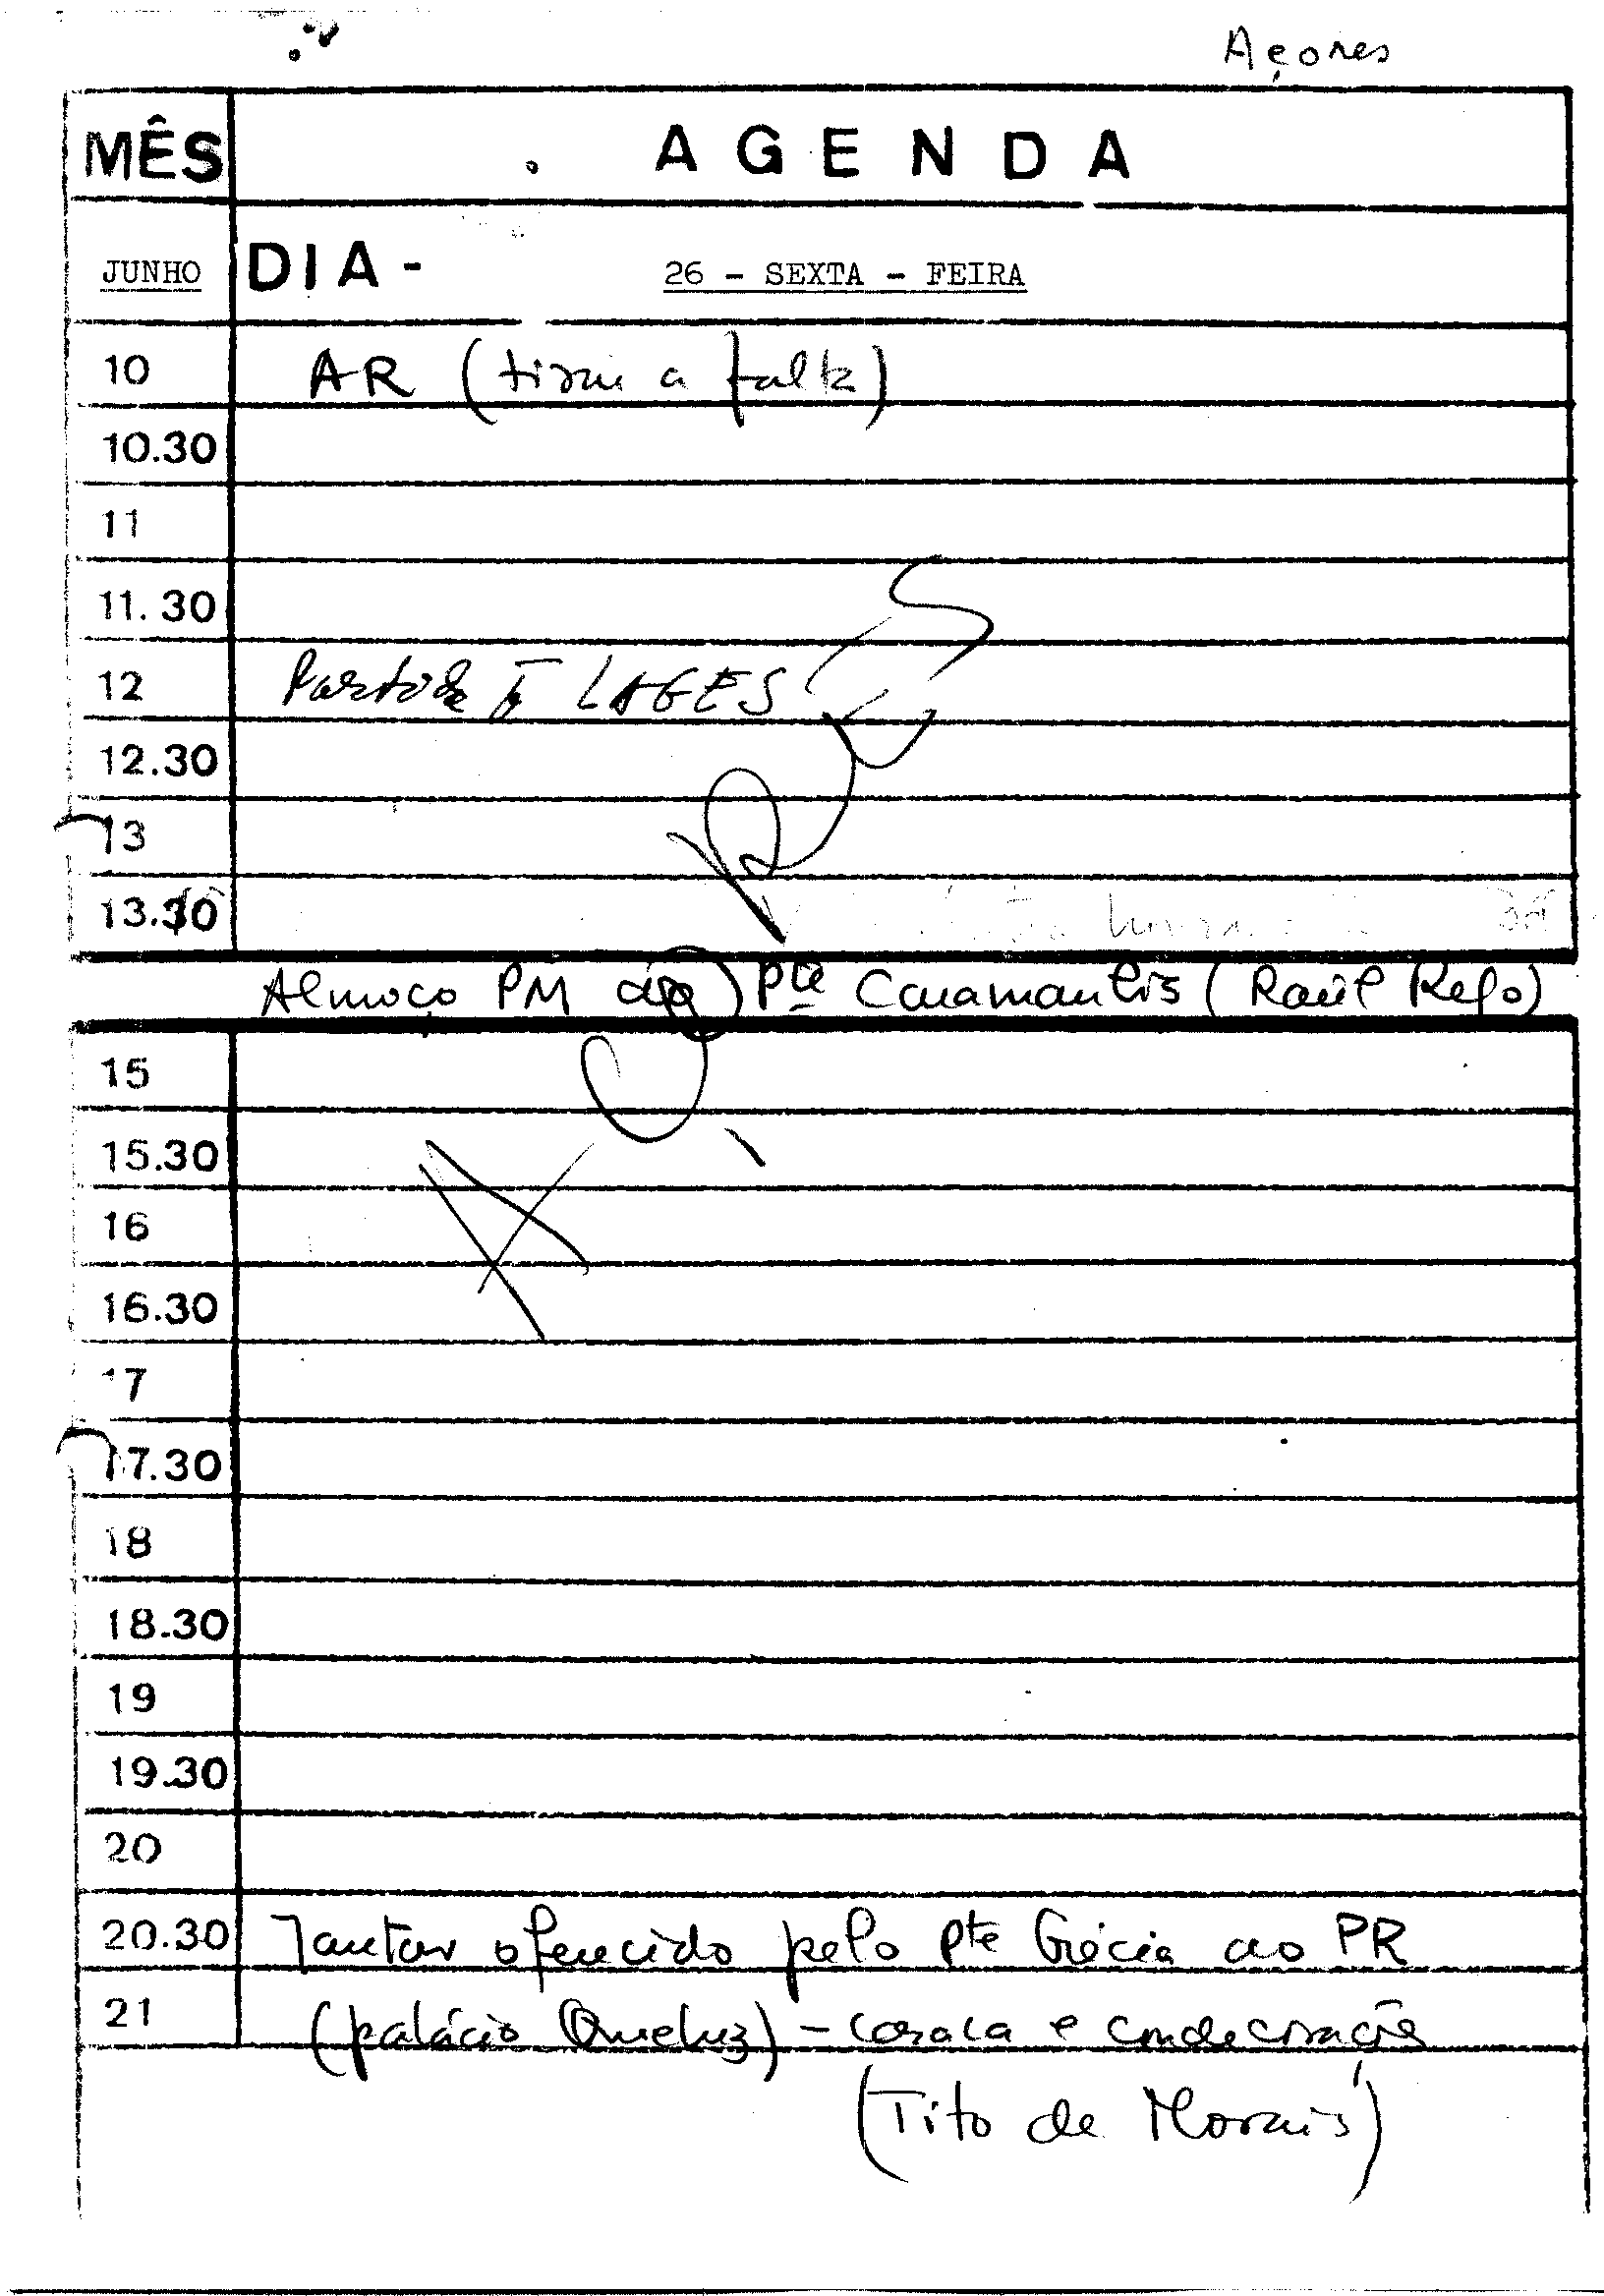 Açores
MÊS AGENDA
JUNHO DIA - 26 - SEXTA - FEIRA
10 AR (tirar a falta)
10.30
11
11.30
12 Partida LAGES
12.30
13
13.30
Almoço PM ao Pte Caramanlis (Raúl Rego)
AÇORES
15
15.30
16
16.30
17
17.30
18
18.30
19
19.30
20
20.30 Jantar oferecido pelo Pte Grécia ao PR
21 (palácio Queluz) - casaca e condecorações
(Tito de Morais)